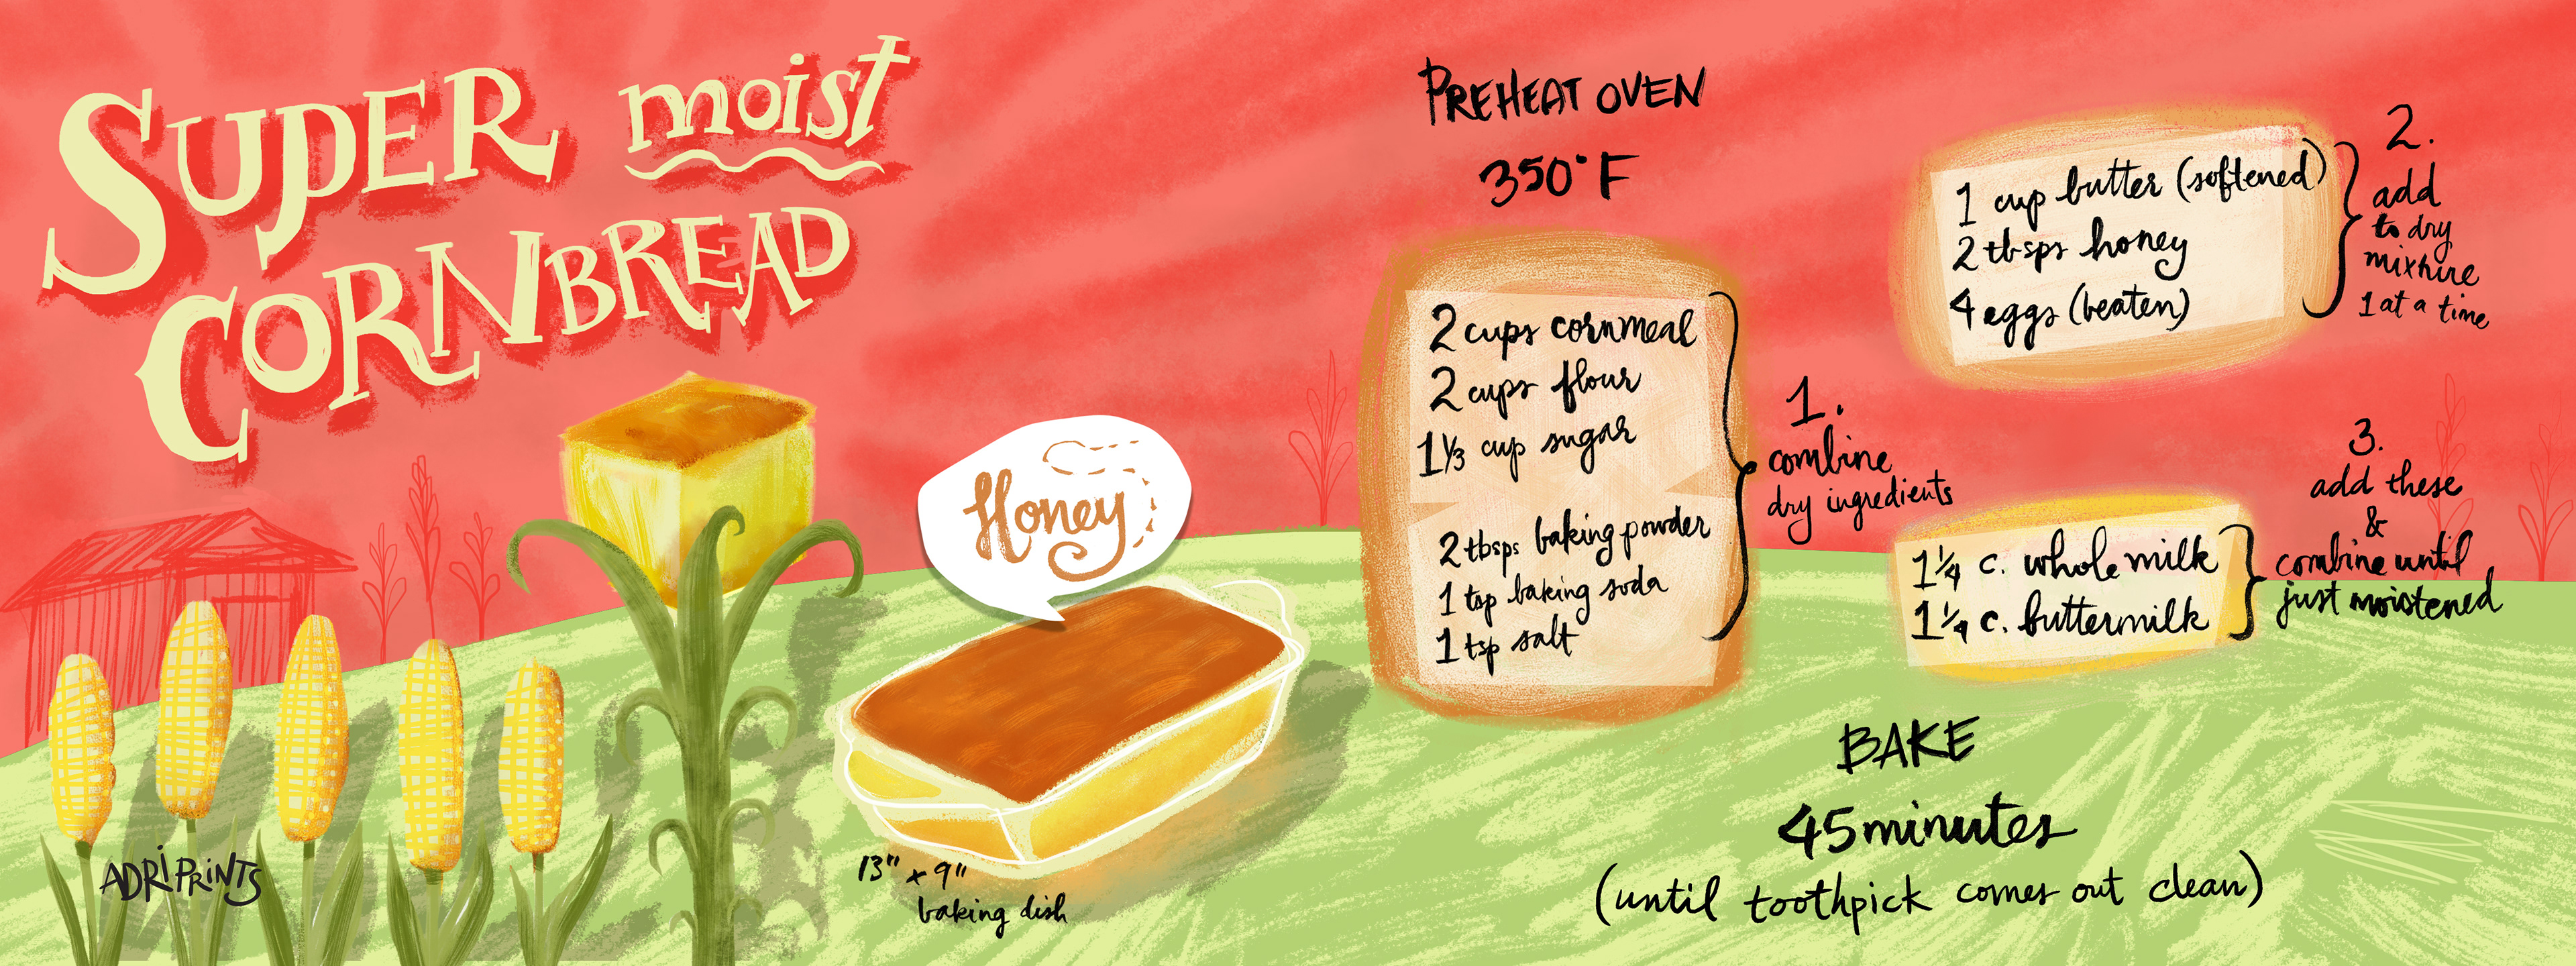 SUPER moist
CORNBREAD
Honey
13" x 9"
baking dish
ADRiPRiNTS
PREHEAT OVEN
350°F
2 cups cornmeal
2 cups flour
1 1/3 cup sugar
2 tbsps baking powder
1 tsp baking soda
1 tsp salt
1.
combine
dry ingredients
1 cup butter (softened)
2 tbsps honey
4 eggs (beaten)
2.
add
to dry
mixture
1 at a time
1 1/4 c. whole milk
1 1/4 c. buttermilk
3.
add these
&
combine until
just moistened
BAKE
45 minutes
(until toothpick comes out clean)